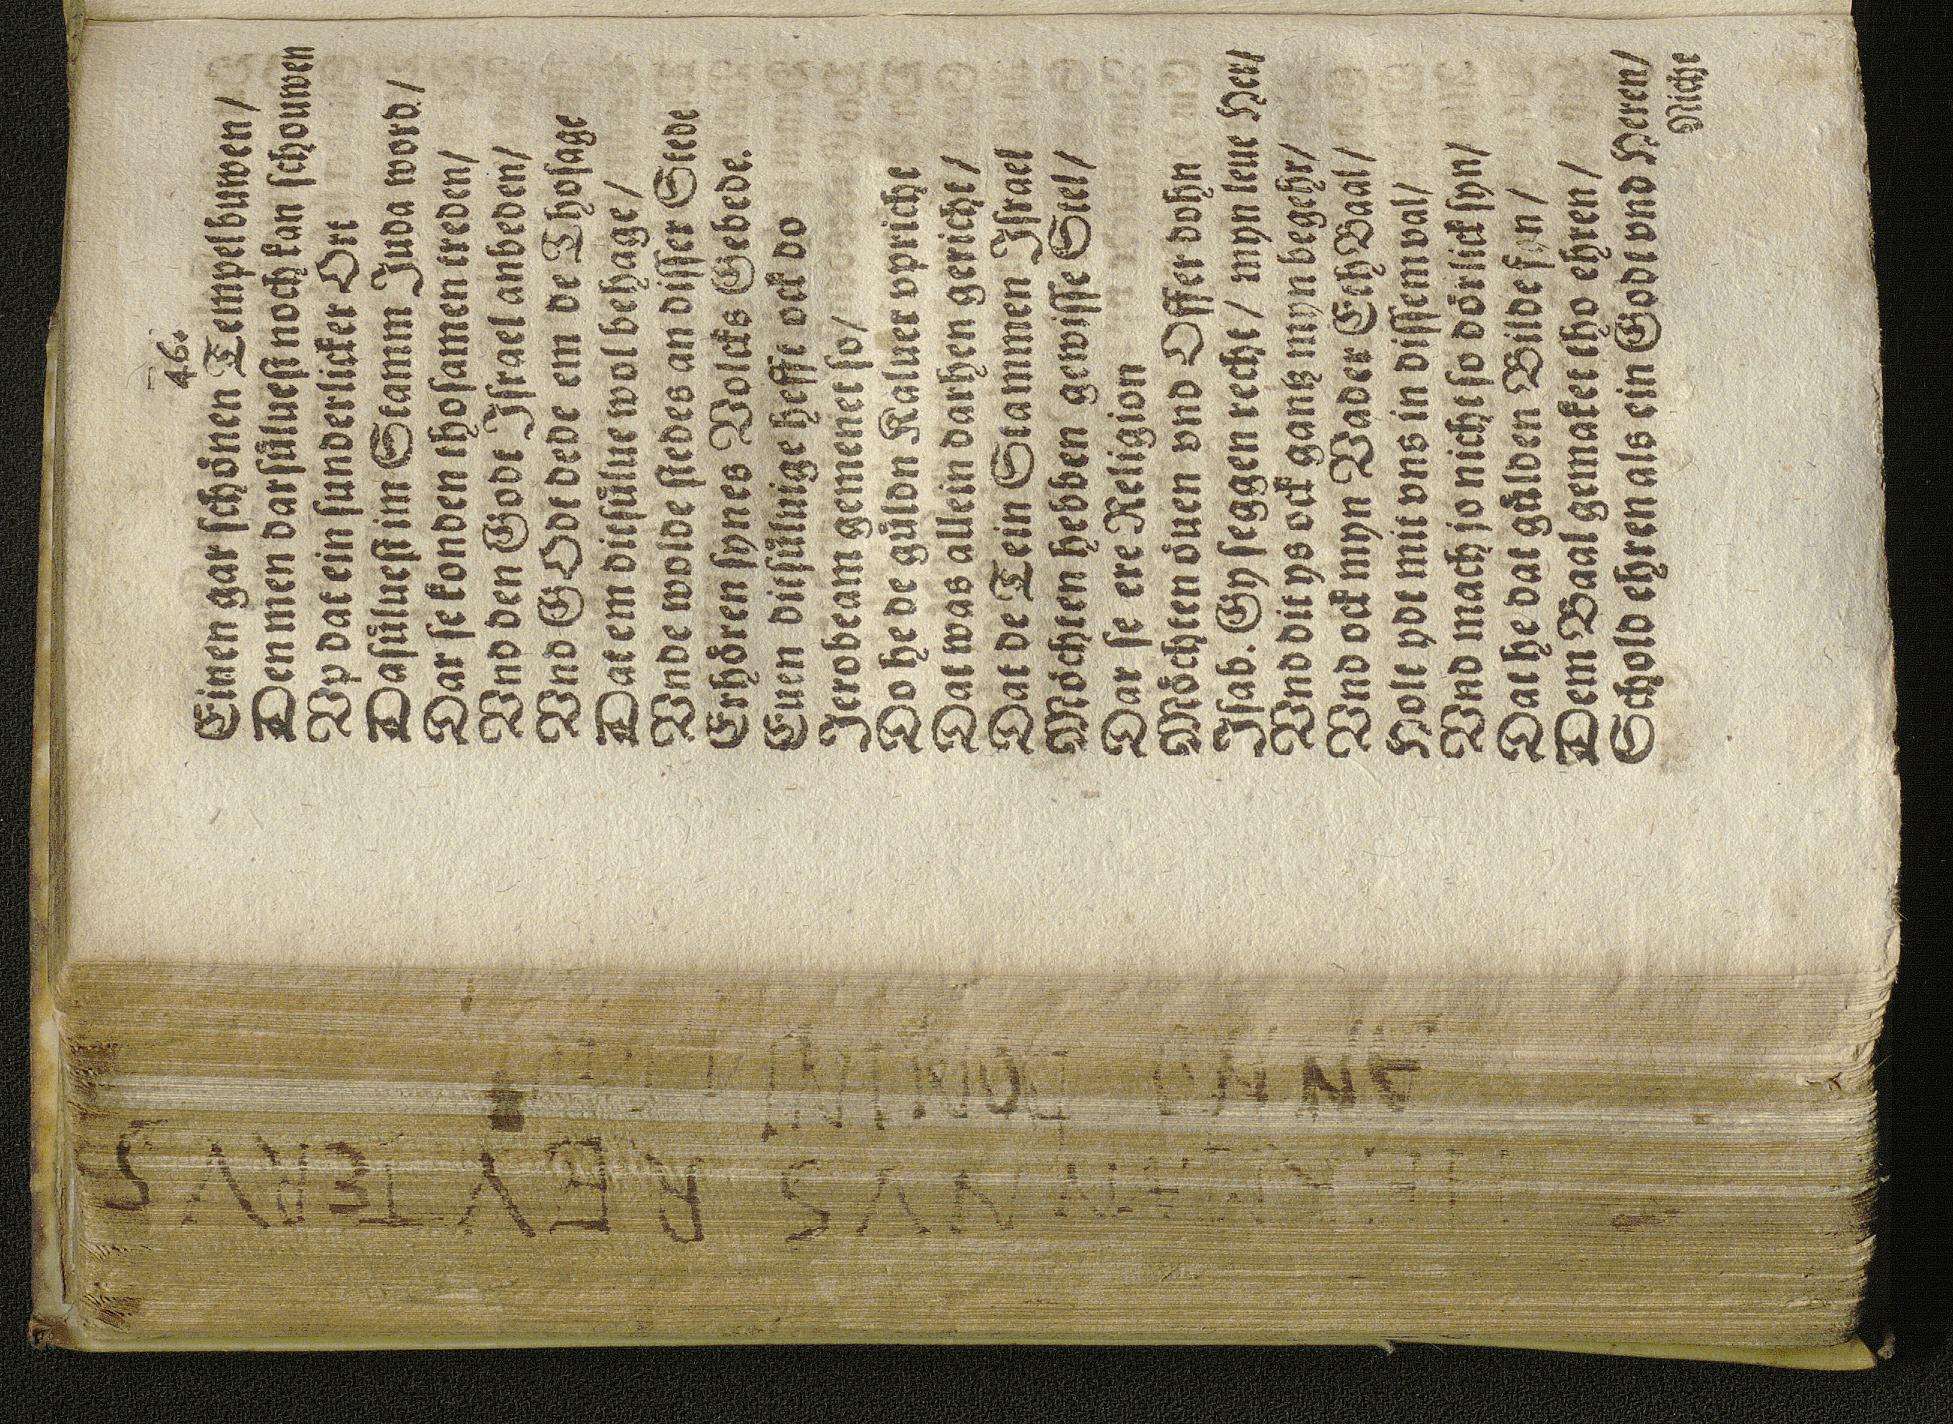 46.
Einen gar schönen Tempel buwen /
Den men darsüluest noch kan schouwen
Vp dat ein sunderlicker Ort
Dasüluest im Stamm Juda word /
Dar se konden thosamen treden /
Vnd den Godt Israel anbeden /
Vnd GOdt dede em de Thosage
Dat em ditsülue wol behage /
Vnde wolde stedes an disser Stede
Erhören synes Volcks Gebede.
Euen ditsüluige hefft ock do
Jerobeam gemenet so /
Do he de güldn Kaluer vpricht
Dat was allein darhen gericht /
Dat de Tein Stammen Israel
Möchten hebben gewisse Stel /
Dar se ere Religion
Möchten öuen vnd Offer dohn
Isab. Gy seggen recht / myn leue Her /
Vnd dit ys ock gantz myn begehr /
Vnd ock myn Vader EthBaal /
Holt ydt mit vns in dissem val /
Vnd mach jo nicht so dörlick syn /
Dat he dat gülden Bilde syn /
Dem Baal gemaket tho ehren /
Schold ehren als ein Godt vnd Heren /
Nicht
ANNO DOMINI
HERMANNVS